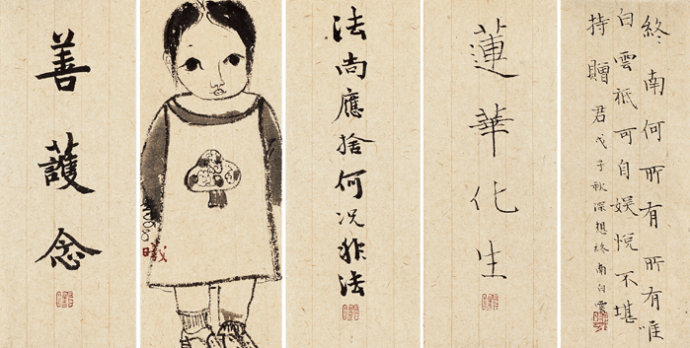 終南何所有所有唯
白雲祇可自娛悅不堪
持贈君戊子秋深想終南白雲
蓮華化生
法尚應捨何况非法
曦
善護念